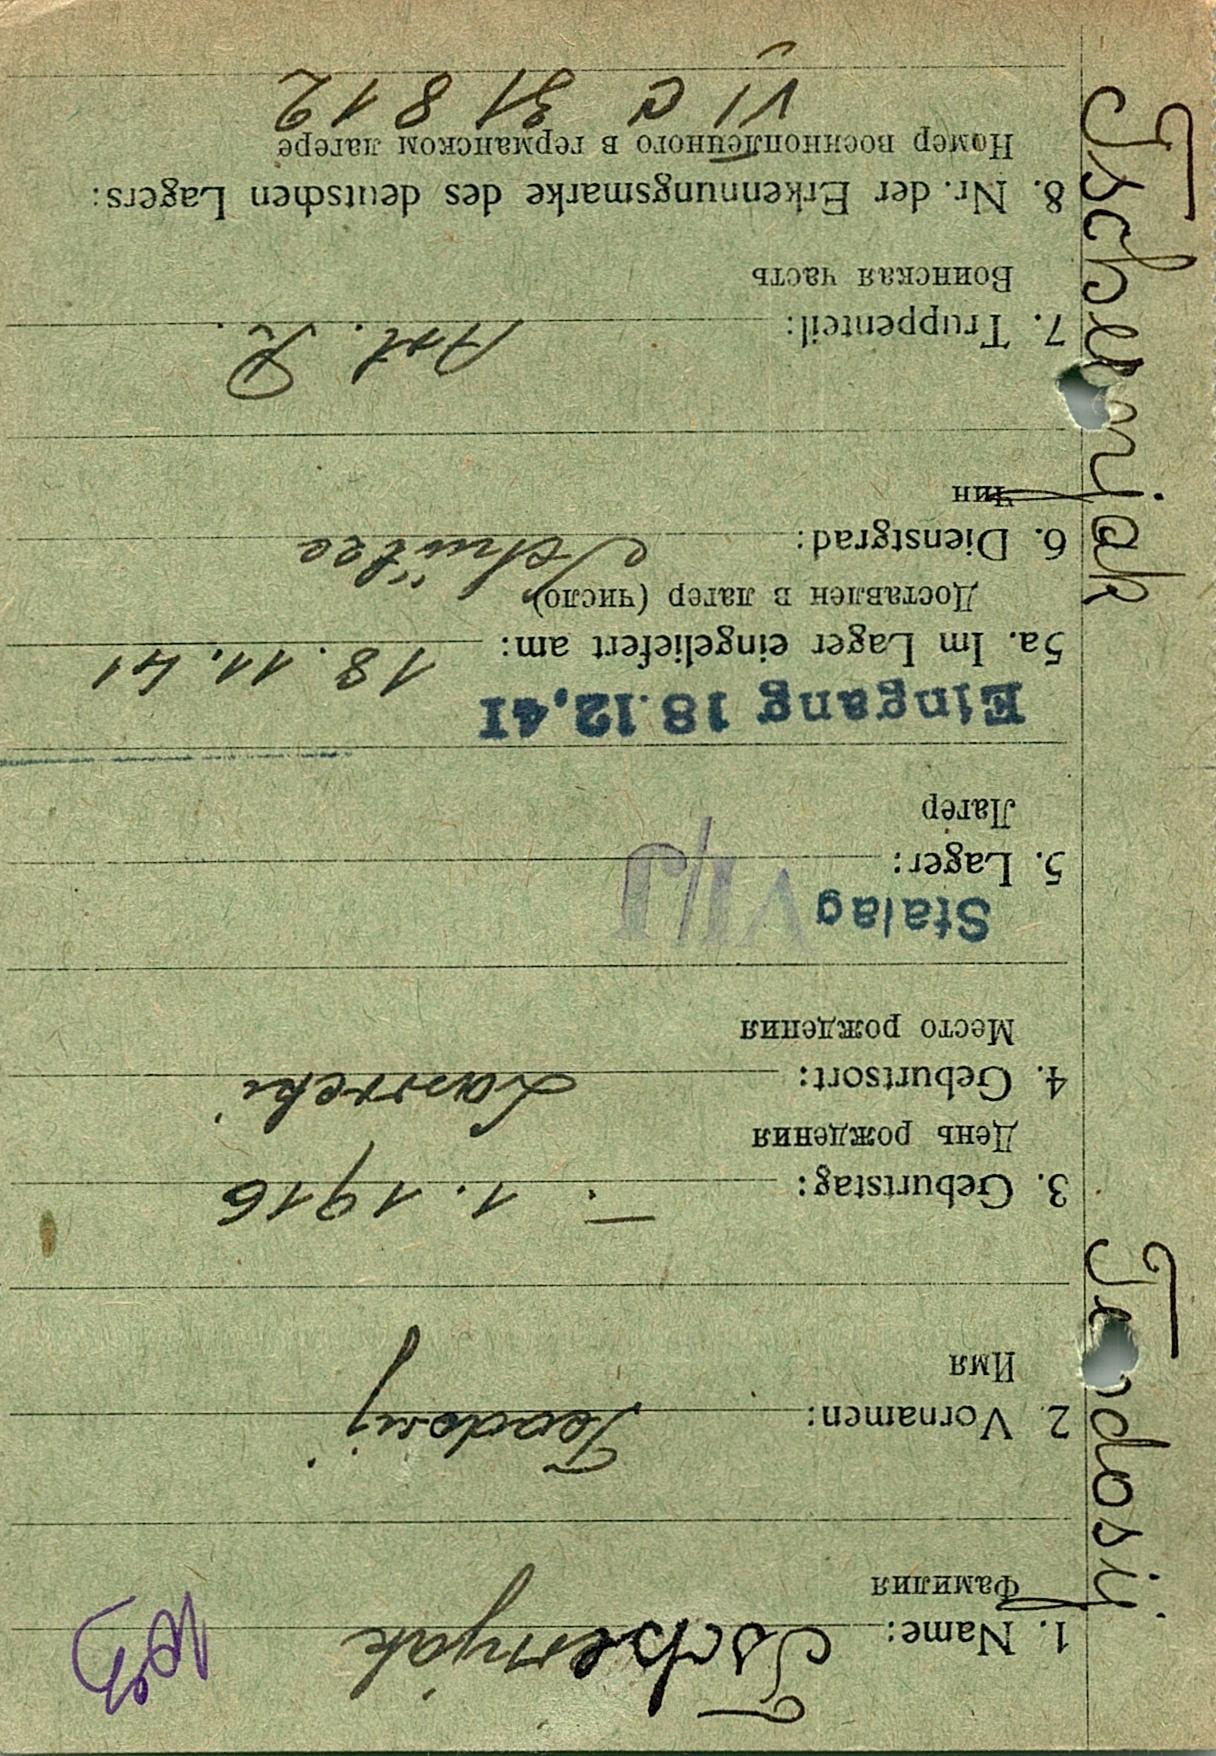 1. Name: Tschernjak
Фамилия
2. Vornamen: Feodosij
Имя
3. Geburtstag: –. 1. 1916
День рождения
4. Geburtsort:
Место рождения
Stalag VI/J
5. Lager:
Лагер
Eingang 18.12.41
5a. Im Lager eingeliefert am: 18.11.41
Доставлен в лагер (число)
6. Dienstgrad: Schütze
Чин
7. Truppenteil: Art. R.
Воинская часть
8. Nr. der Erkennungsmarke des deutschen Lagers:
Номер военнопленного в германском лагере
VI C 31812
Tschernjak Teodosij